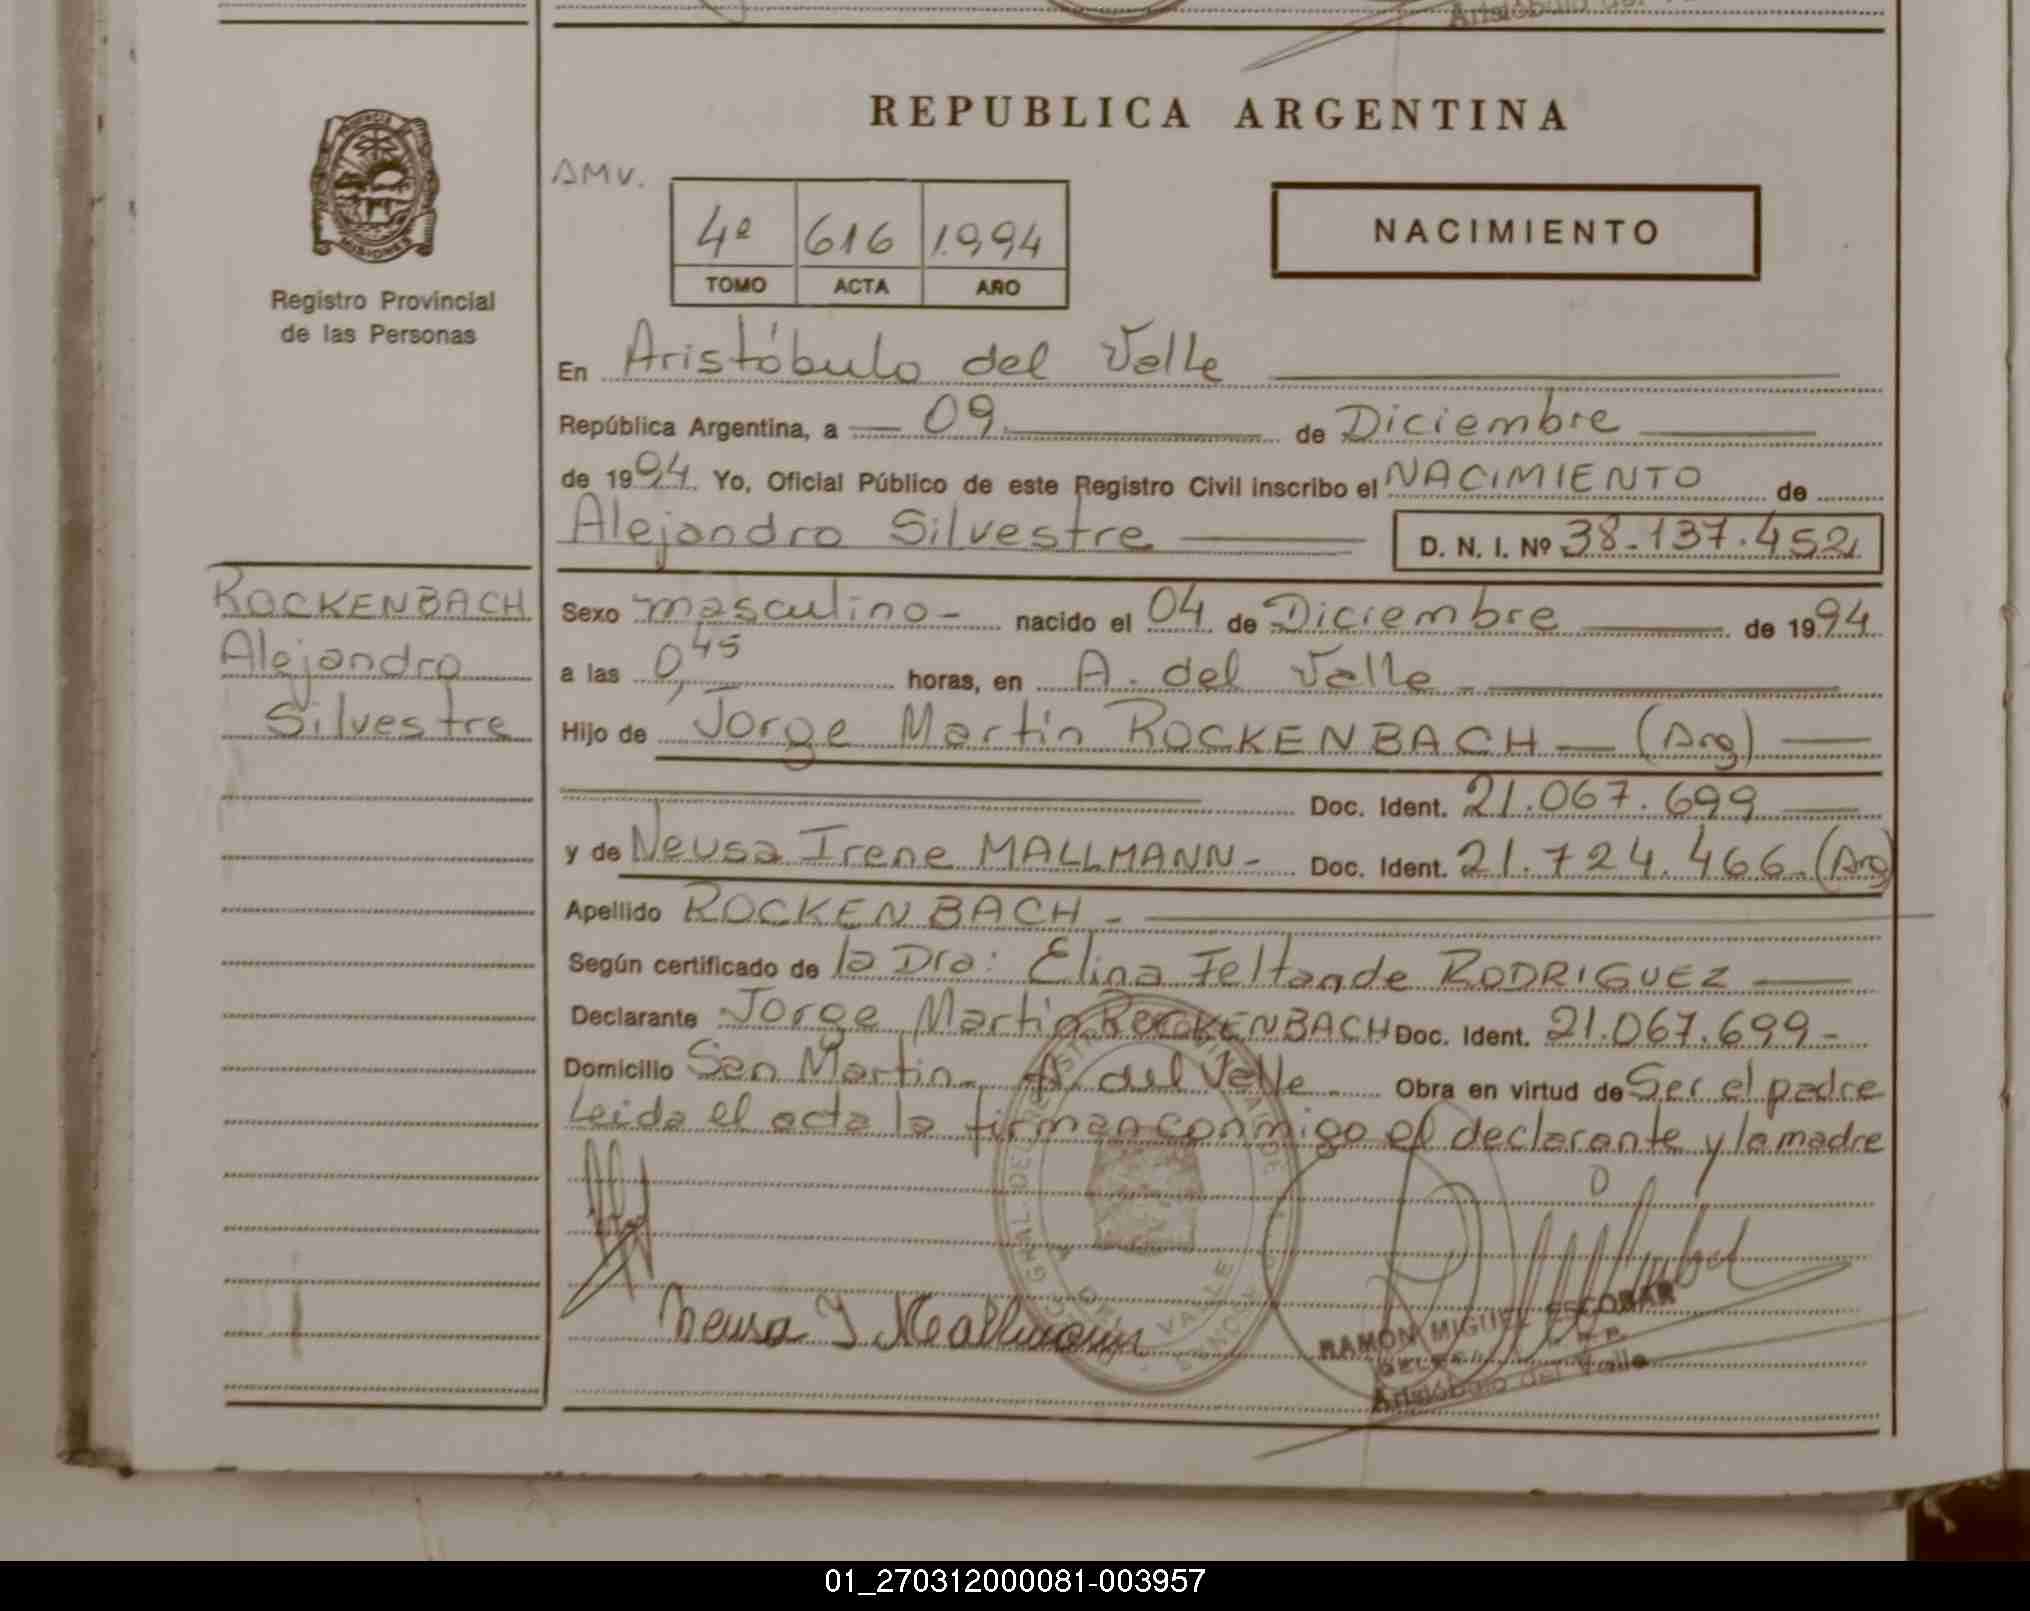 REPUBLICA ARGENTINA
AMV.
4º 616 1.994
TOMO ACTA AÑO
NACIMIENTO
PROVINCIA
MISIONES
Registro Provincial
de las Personas
En Aristóbulo del Valle
República Argentina, a 09 de Diciembre
de 1994. Yo, Oficial Público de este Registro Civil inscribo el NACIMIENTO de
Alejandro Silvestre D. N. I. Nº 38.137.452
ROCKENBACH
Alejandro
Silvestre
Sexo masculino- nacido el 04 de Diciembre de 1994
a las 0,45 horas, en A. del Valle
Hijo de Jorge Martín ROCKENBACH (Arg)
Doc. Ident. 21.067.699
y de Neusa Irene MALLMANN- Doc. Ident. 21.724.466.(Arg)
Apellido ROCKENBACH-
Según certificado de la Dra: Elina RODRIGUEZ
Declarante Jorge Martín ROCKENBACH Doc. Ident. 21.067.699-
Domicilio San Martin- A. del Valle Obra en virtud de Ser el padre
Leida el acta la firman conmigo el declarante y la madre
Neusa I Mallmann
RAMON MIGUEL ESCOBAR
Aristóbulo del Valle
01_270312000081-003957